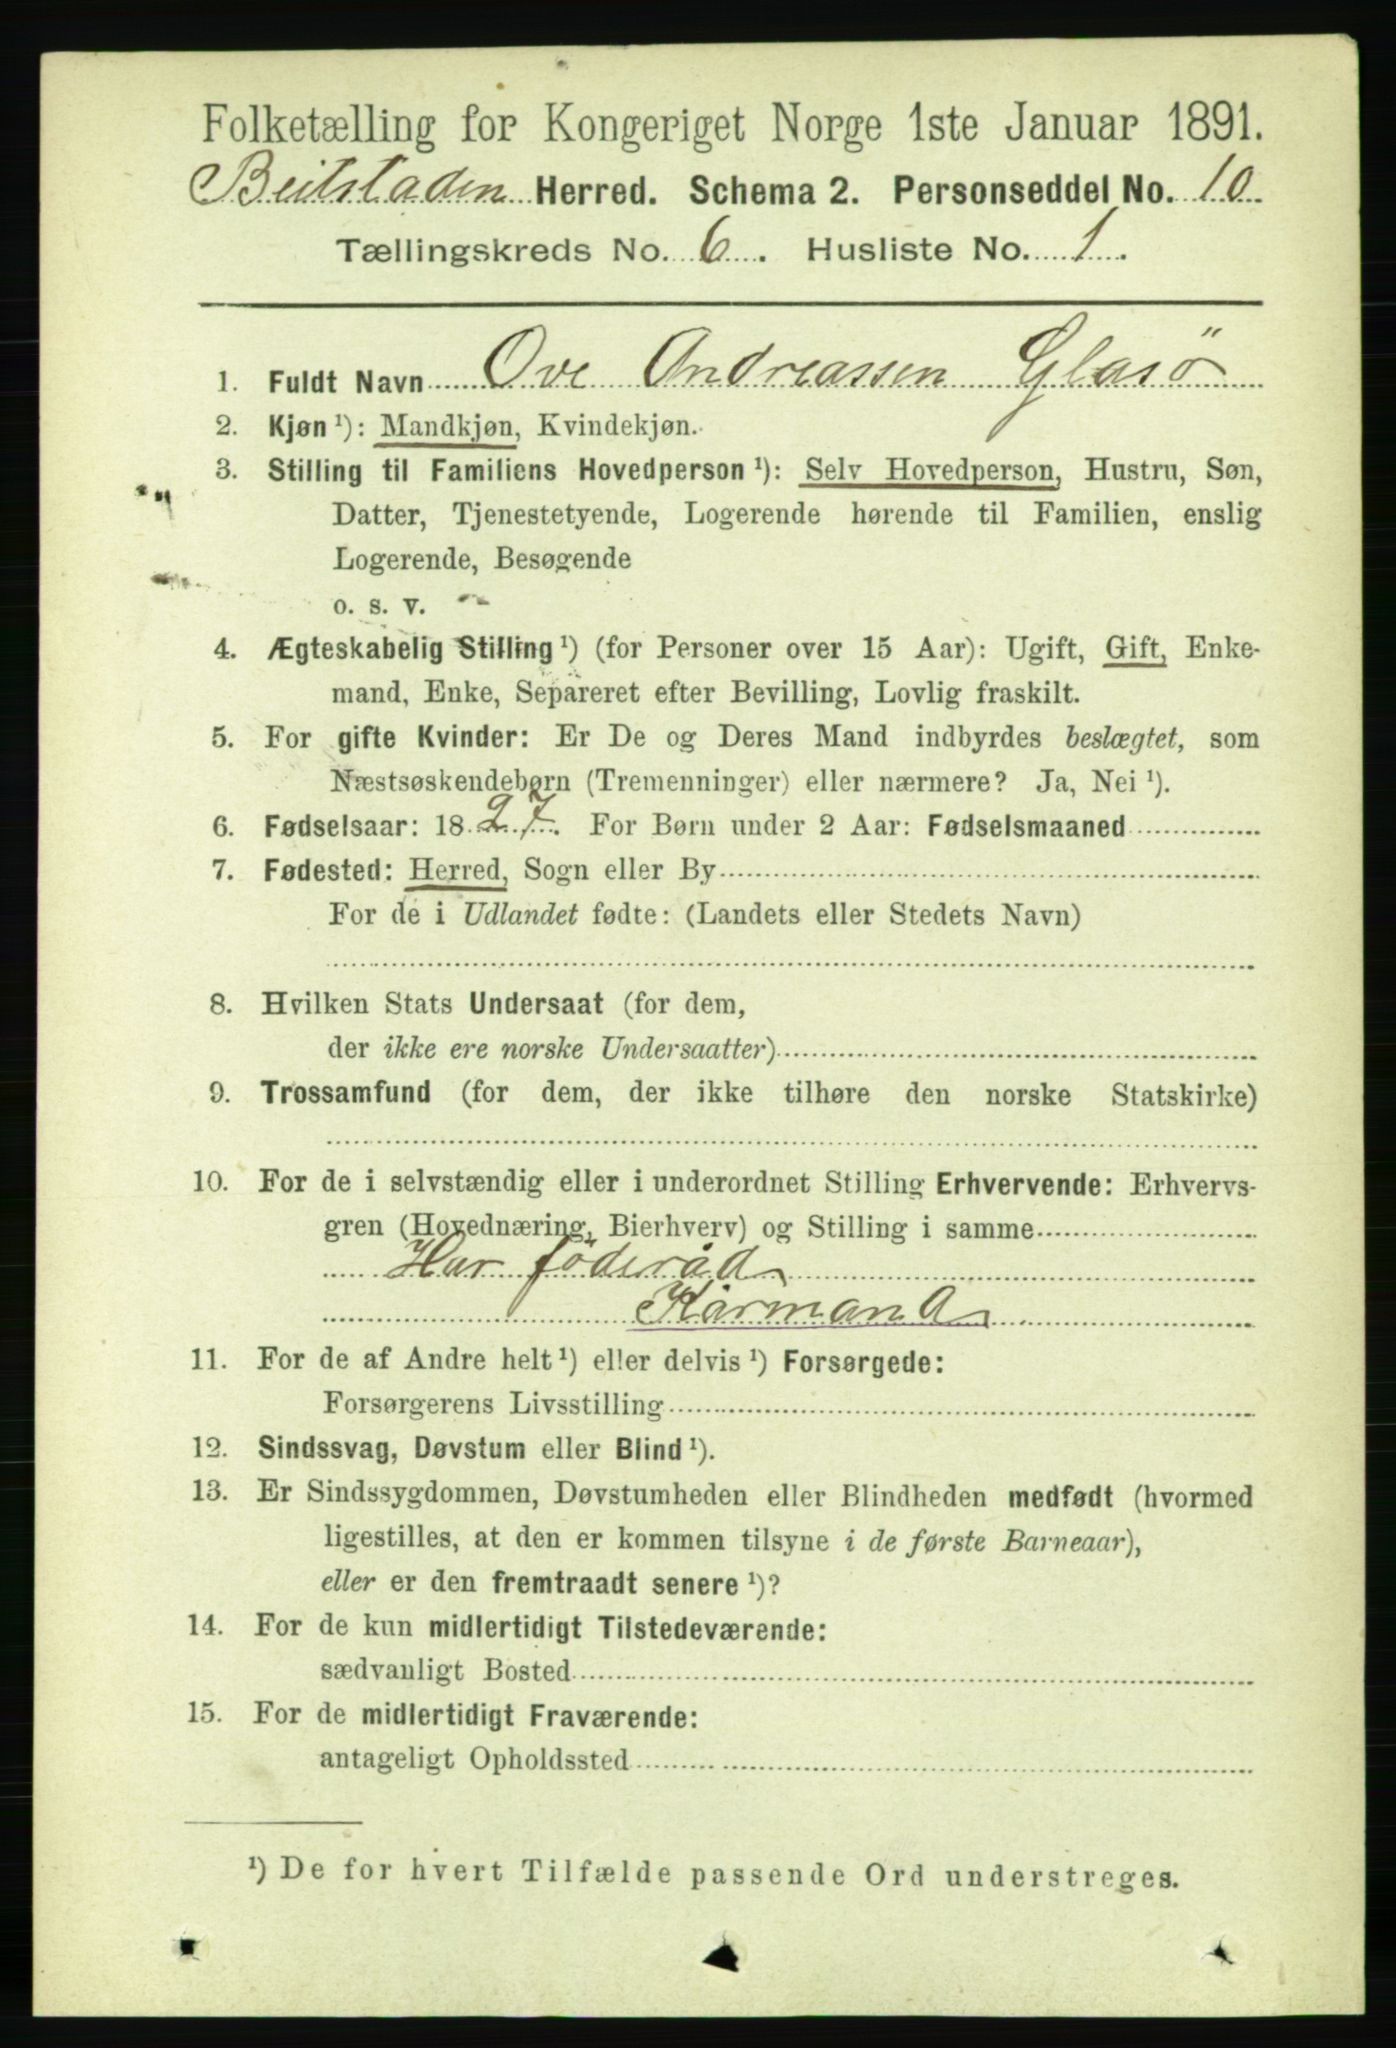 Folketælling for Kongeriget Norge 1ste Januar 1891.
Beitstaden Herred. Schema 2. Personseddel No. 10
Tællingskreds No. 6. Husliste No. 1.
1. Fuldt Navn Ove Andreassen Glasö
2. Kjøn ¹): Mandkjøn, Kvindekjøn.
3. Stilling til Familiens Hovedperson ¹): Selv Hovedperson, Hustru, Søn,
Datter, Tjenestetyende, Logerende hørende til Familien, enslig
Logerende, Besøgende
o. s. v.
4. Ægteskabelig Stilling ¹) (for Personer over 15 Aar): Ugift, Gift, Enke-
mand, Enke, Separeret efter Bevilling, Lovlig fraskilt.
5. For gifte Kvinder: Er De og Deres Mand indbyrdes beslægtet, som
Næstsøskendebørn (Tremenninger) eller nærmere? Ja, Nei ¹).
6. Fødselsaar: 1827. For Børn under 2 Aar: Fødselsmaaned
7. Fødested: Herred, Sogn eller By
For de i Udlandet fødte: (Landets eller Stedets Navn)
8. Hvilken Stats Undersaat (for dem,
der ikke ere norske Undersaatter)
9. Trossamfund (for dem, der ikke tilhøre den norske Statskirke)
10. For de i selvstændig eller i underordnet Stilling Erhvervende: Erhvervs-
gren (Hovednæring, Bierhverv) og Stilling i samme
Har föderåd
Kårmand
11. For de af Andre helt ¹) eller delvis ¹) Forsørgede:
Forsørgerens Livsstilling
12. Sindssvag, Døvstum eller Blind ¹).
13. Er Sindssygdommen, Døvstumheden eller Blindheden medfødt (hvormed
ligestilles, at den er kommen tilsyne i de første Barneaar),
eller er den fremtraadt senere ¹)?
14. For de kun midlertidigt Tilstedeværende:
sædvanligt Bosted
15. For de midlertidigt Fraværende:
antageligt Opholdssted
¹) De for hvert Tilfælde passende Ord understreges.